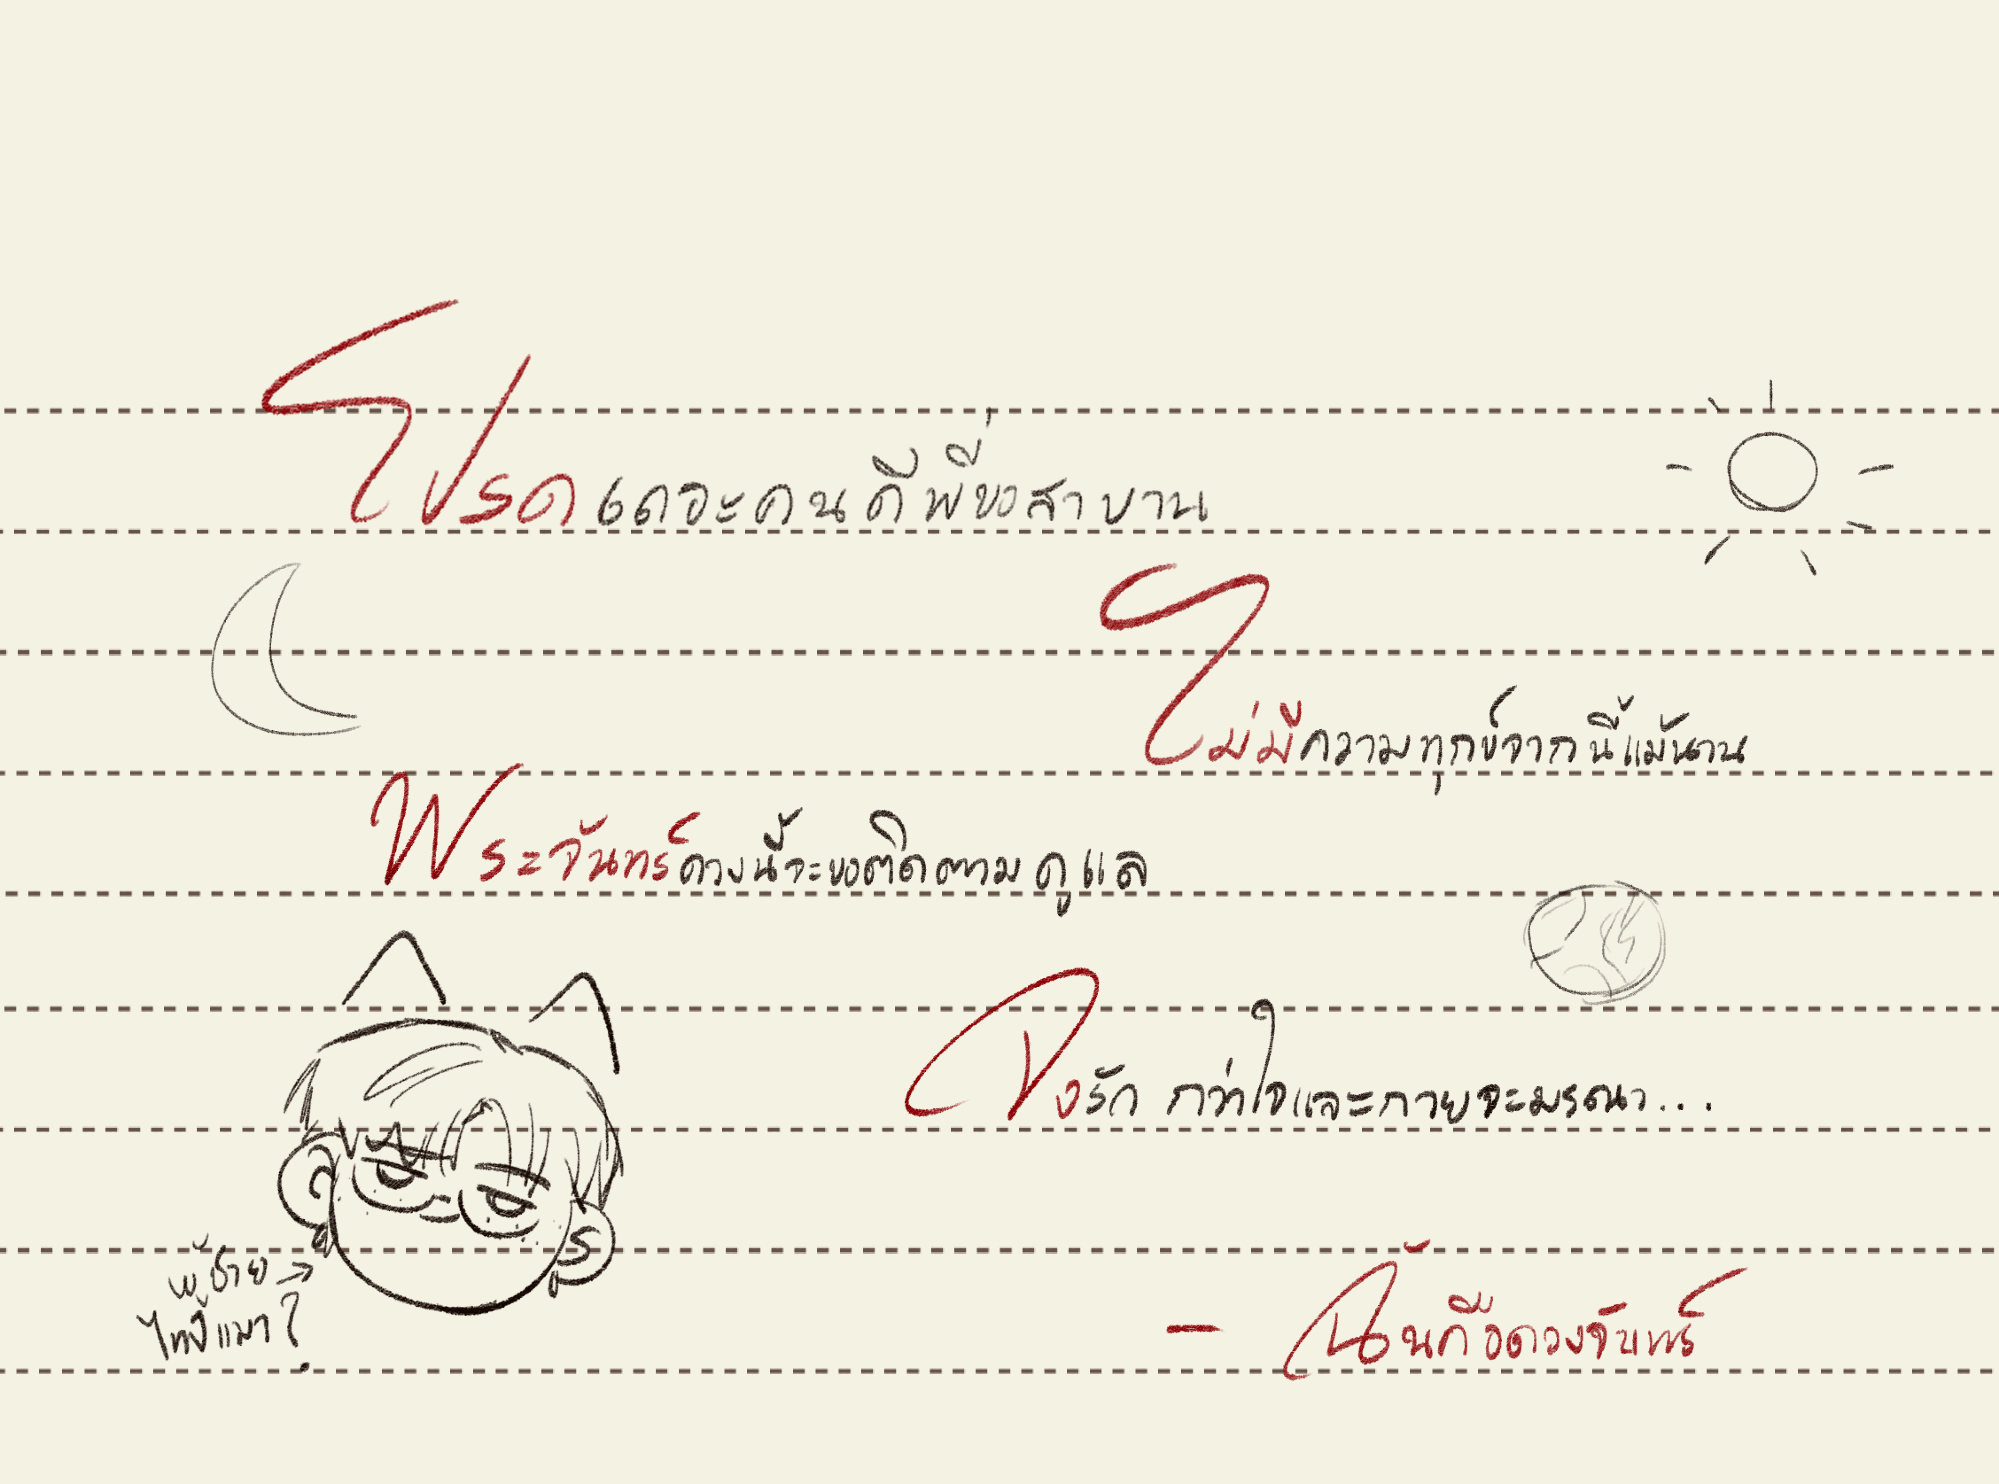 โปรดเถอะคนดีพี่ขอสาบาน
ไม่มีความทุกข์จากนี้แม้นาน
พระจันทร์ดวงนี้จะขอติดตามดูแล
จงรัก กว่าใจและกายจะมรณา...
ผู้ชาย →
ไทป์แมว?
- ฉันคือดวงจันทร์